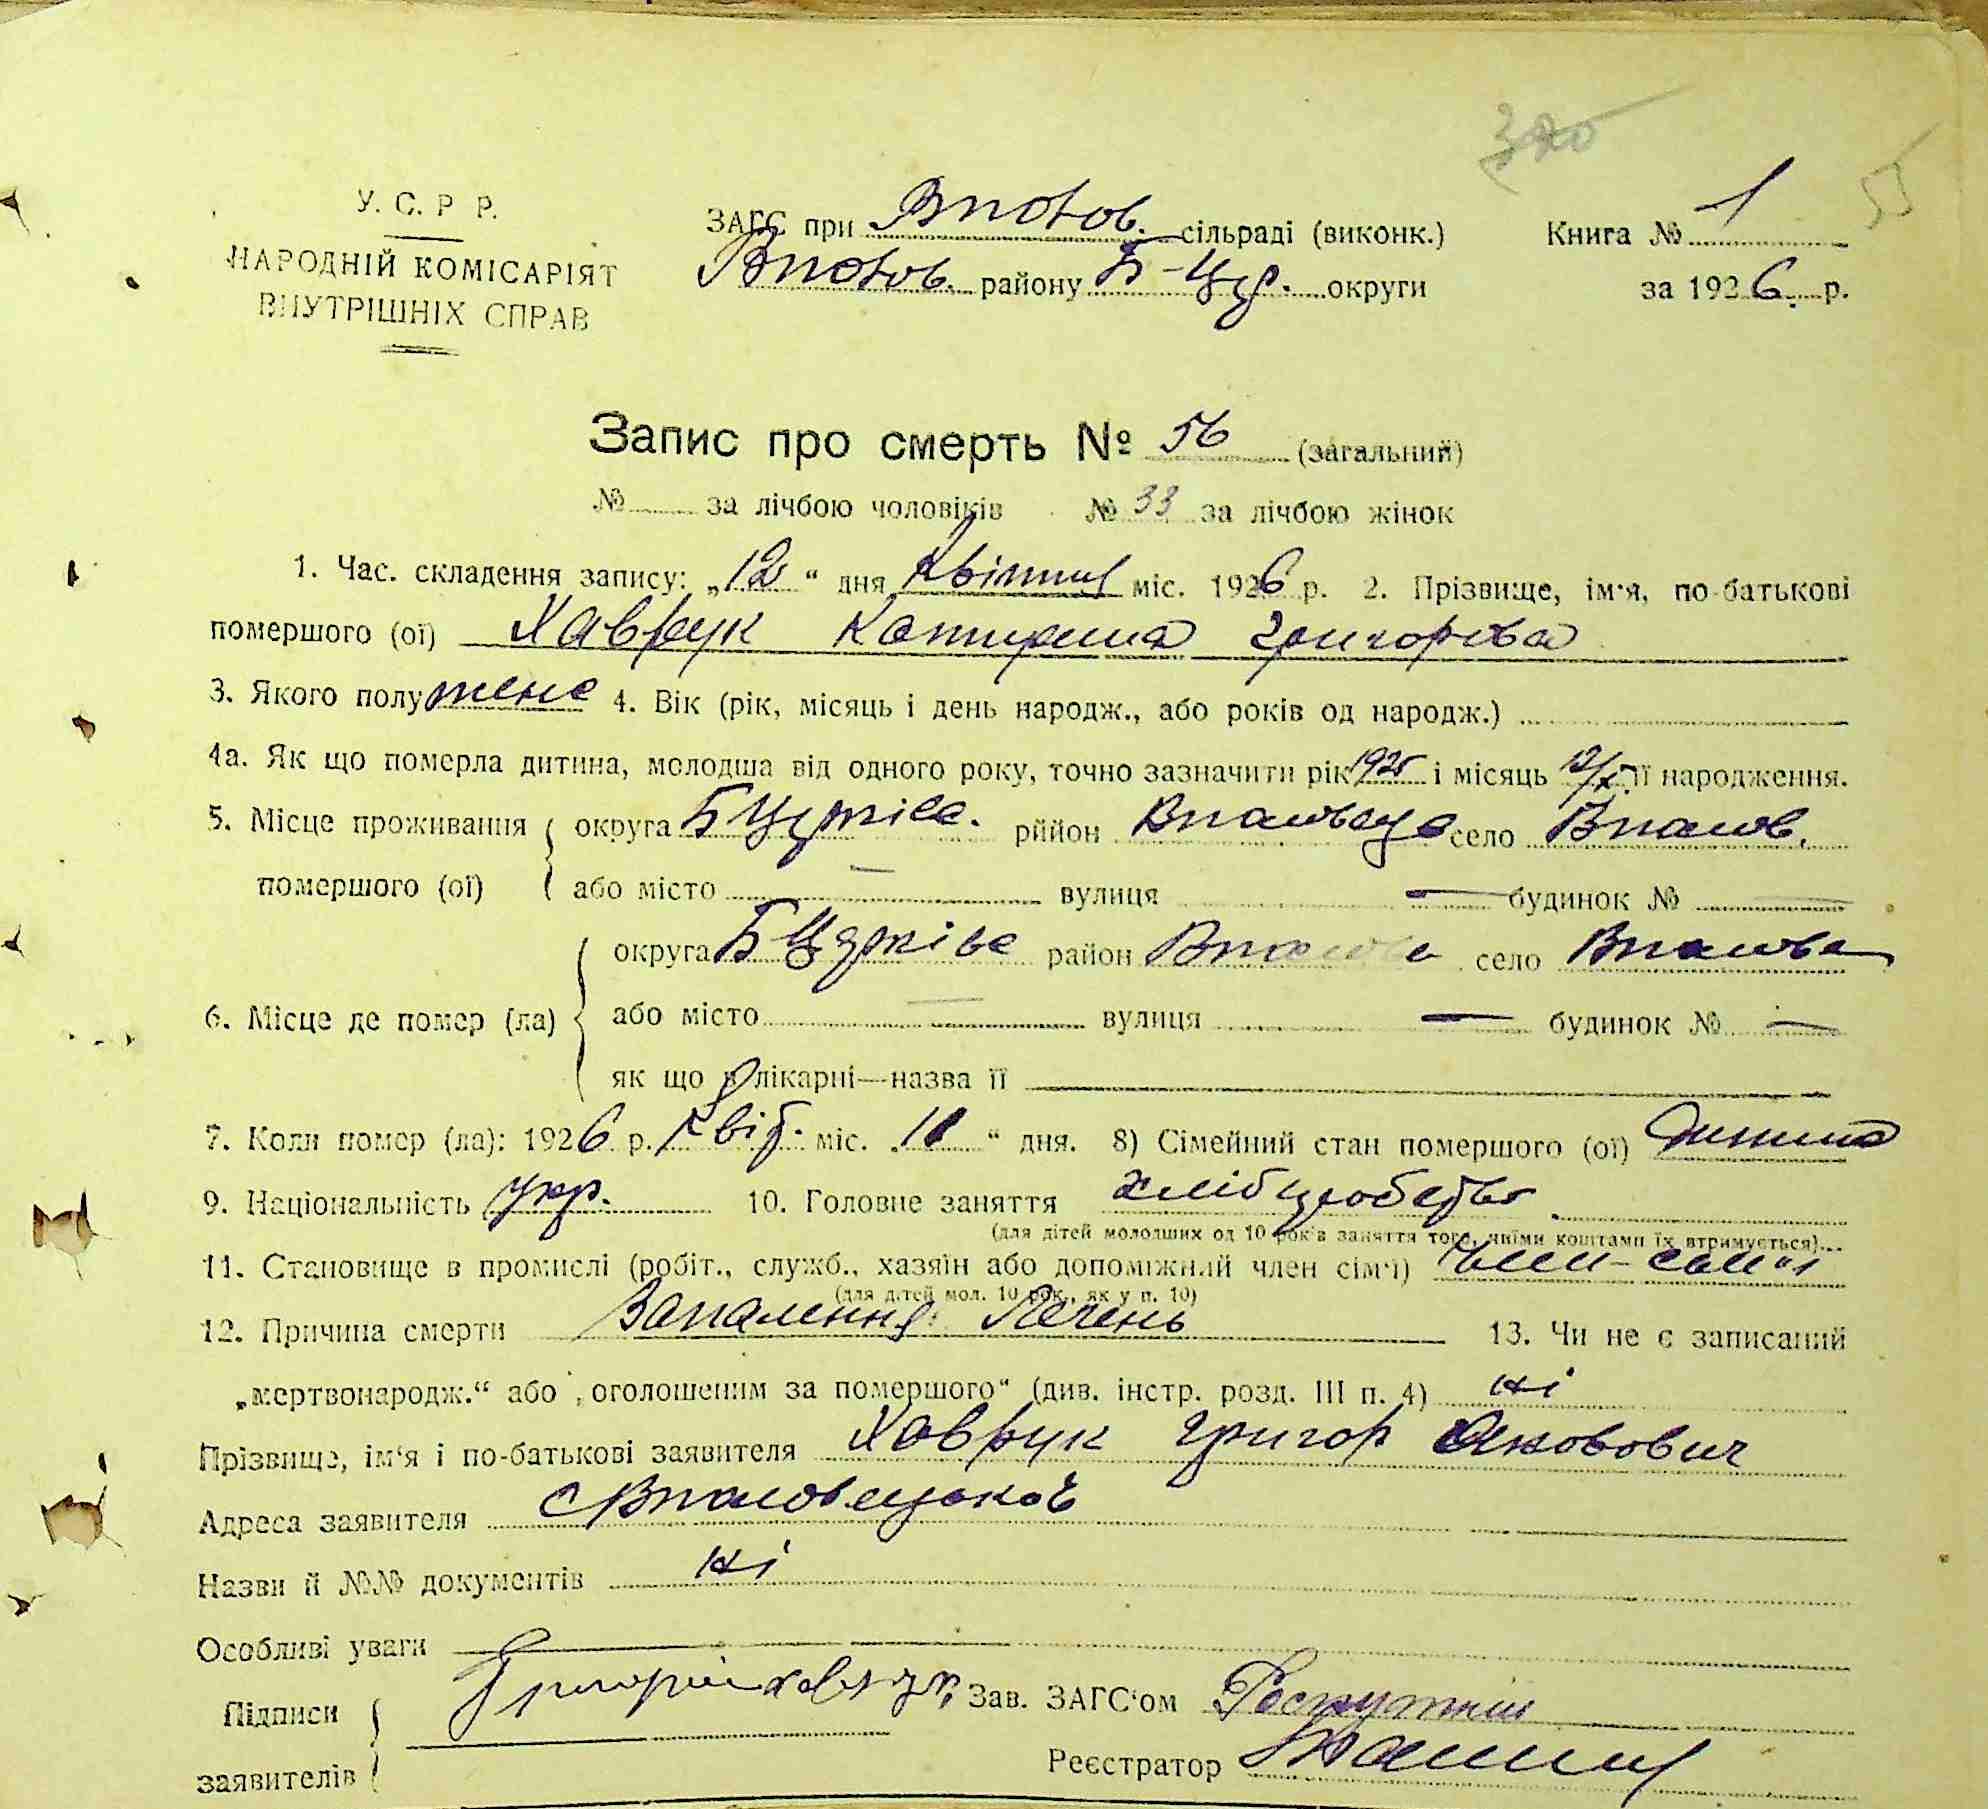 320
55
У. С. Р Р.
НАРОДНІЙ КОМІСАРІЯТ
ВНУТРІШНІХ СПРАВ
ЗАГС при сільраді (виконк.)
району Б-Цер. округи
Книга № 1
за 1926 р.
Запис про смерть № 56 (загальний)
№ за лічбою чоловіків № 33 за лічбою жінок
1. Час. складення запису: „12“ дня Квітня міс. 1926 р. 2. Прізвище, ім'я, по-батькові
помершого (ої) Хаврук Катирина Григорова
3. Якого полу жене 4. Вік (рік, місяць і день народж., або років од народж.)
4а. Як що померла дитина, молодша від одного року, точно зазначити рік 1925 і місяць її народження.
5. Місце проживання помершого (ої) округа район село
або місто — вулиця — будинок № —
6. Місце де помер (ла) округа район село
або місто — вулиця — будинок № —
як що в лікарні—назва її
7. Коли помер (ла): 1926 р. міс. „11“ дня. 8) Сімейний стан помершого (ої) Дитина
9. Національність Укр. 10. Головне заняття
(для дітей молодших од 10 років заняття того, чиїми коштами їх втримується)
11. Становище в промислі (робіт., служб., хазяїн або допоміжний член сім'ї) член-сем'ї
(для дітей мол. 10 рок., як у п. 10)
12. Причина смерти Запалення Лечень 13. Чи не є записаний
„мертвонародж.“ або „оголошеним за помершого“ (див. інстр. розд. III п. 4) ні
Прізвище, ім'я і по-батькові заявителя Хаврук Григор Якобович
Адреса заявителя
Назви й №№ документів ні
Особливі уваги
Підписи заявителів Зав. ЗАГС'ом
Реєстратор